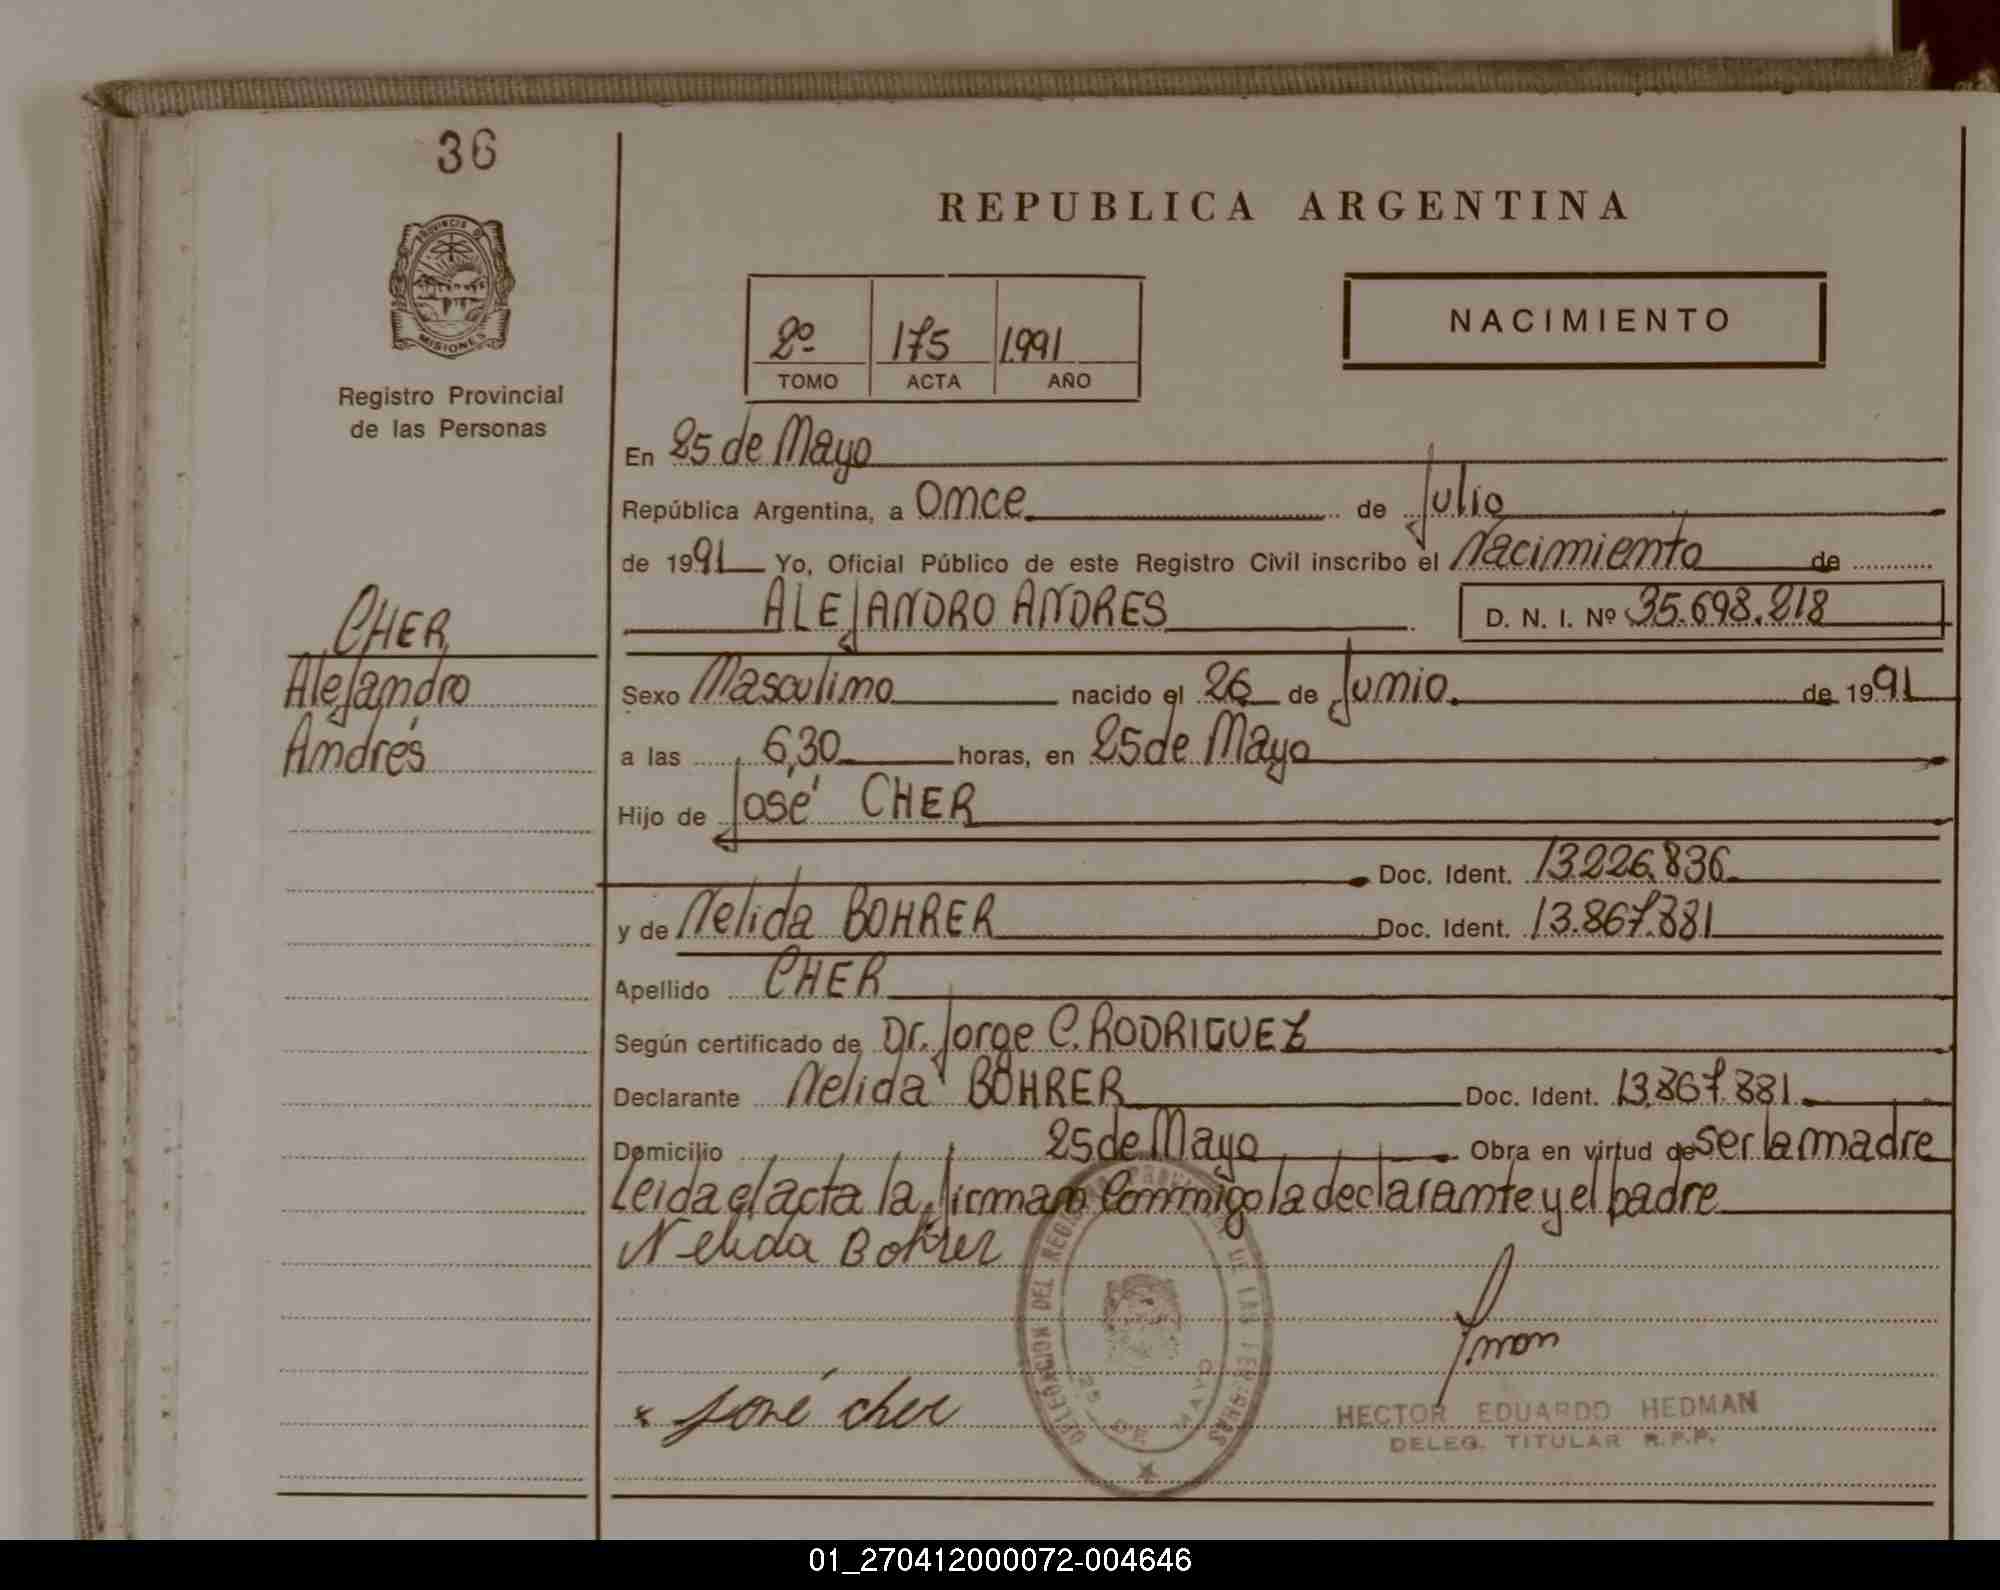 36
REPUBLICA ARGENTINA
PROVINCIA DE
MISIONES
Registro Provincial
de las Personas
2º 175 1991
TOMO ACTA AÑO
NACIMIENTO
En 25 de Mayo
República Argentina, a Once de Julio
de 1991 Yo, Oficial Público de este Registro Civil inscribo el Nacimiento de
ALEJANDRO ANDRES D. N. I. Nº 35.698.218
CHER
Alejandro
Andrés
Sexo Masculino nacido el 26 de Junio de 1991
a las 6,30 horas, en 25 de Mayo
Hijo de José CHER
Doc. Ident. 13.226.836
y de Nelida BOHRER Doc. Ident. 13.867.881
Apellido CHER
Según certificado de Dr. Jorge C. RODRIGUEZ
Declarante Nelida BOHRER Doc. Ident. 13.867.881
Domicilio 25 de Mayo Obra en virtud de ser la madre
Leida el acta la firman conmigo la declarante y el padre
Nelida Bohrer
DELEGACION DEL REGISTRO PROVINCIAL DE LAS PERSONAS
25 DE MAYO
José Cher
HECTOR EDUARDO HEDMAN
DELEG. TITULAR R.P.P.
01_270412000072-004646